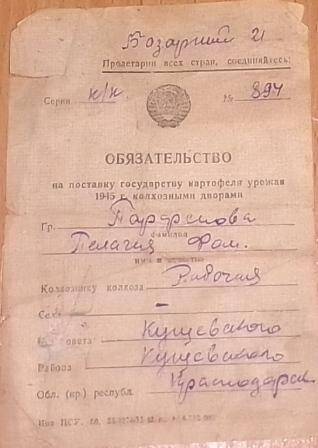 Базарный 21
Пролетарии всех стран, соединяйтесь!
Серия н/к. № 894
ОБЯЗАТЕЛЬСТВО
на поставку государству картофеля урожая
1945 г. колхозными дворами
Гр.
фамилия
Пелагия Фом.
имя и отчество
Колхознику колхоза Рабочая
Сел —
совета Кущевского
Района Кущевского
Обл. (кр) республ. Краснодарск.